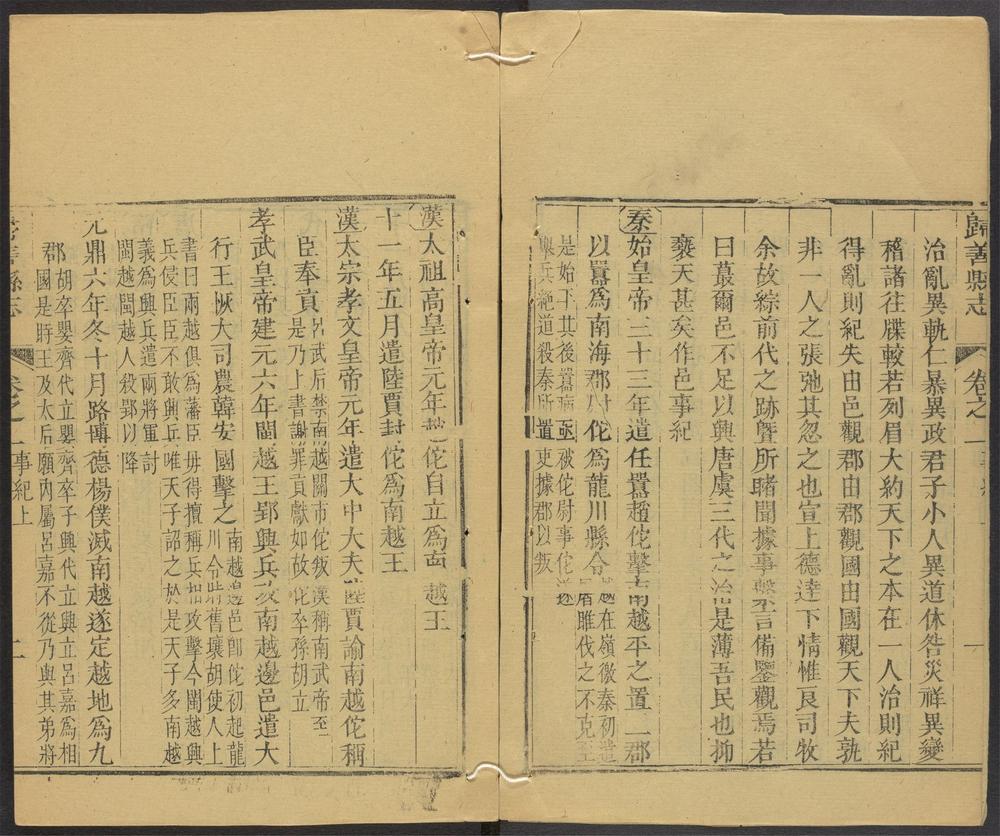 歸善縣志 卷之一
治亂異軌仁暴異政君子小人異道休咎災祥異變
稽諸往牒較若列眉大約天下之本在一人治則紀
得亂則紀失由邑觀郡由郡觀國由國觀天下夫孰
非一人之張弛其忽之也宣上德達下情惟良司牧
余故綜前代之跡曁所睹聞據事繫言備鑒觀焉若
曰蕞爾邑不足以興唐虞三代之治是薄吾民也抑
褻天甚矣作邑事紀
秦始皇帝三十三年遣任囂趙佗擊南越平之置二郡
以囂爲南海郡尉佗爲龍川縣令越在嶺徼秦初遣
屠雎伐之不克至
是始下其後囂病亟被佗尉事佗遂
興兵絶道殺秦所置吏據郡以叛
漢太祖高皇帝元年趙佗自立爲南越王
十一年五月遣陸賈封佗爲南越王
漢太宗孝文皇帝元年遣大中大夫陸賈諭南越佗稱
臣奉貢呂武后禁南越關市佗叛漢稱南武帝至
是乃上書謝罪貢獻如故佗卒孫胡立
孝武皇帝建元六年閩越王郢興兵攻南越邊邑遣大
行王恢大司農韓安國擊之南越邊邑卽佗初起龍
川令時舊壤胡使人上
書曰兩越俱爲藩臣毋得擅稱兵相攻擊今閩越興
兵侵臣臣不敢興兵唯天子詔之於是天子多南越
義爲興兵遣兩將軍討
閩越閩越人殺郢以降
元鼎六年冬十月路博德楊僕滅南越遂定越地爲九
郡胡卒嬰齊代立嬰齊卒子興代立興立呂嘉爲相
國是時王及太后願內屬呂嘉不從乃與其弟將
善縣志 卷之一 事紀上 二